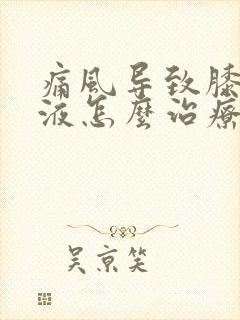 痛風导致膝
液怎麽治療
吴京笑